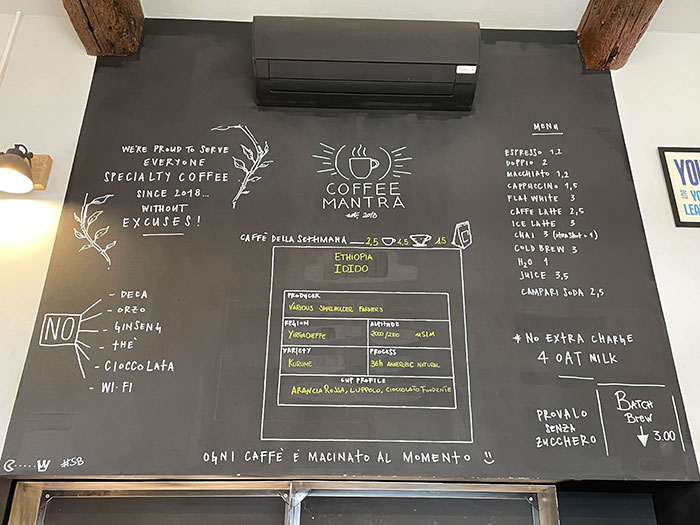 WE'RE PROUD TO SERVE
EVERYONE
SPECIALTY COFFEE
SINCE 2018...
WITHOUT
EXCUSES!
COFFEE
MANTRA
est. 2018
MENU
ESPRESSO 1,2
DOPPIO 2
MACCHIATO 1,2
CAPPUCCINO 1,5
FLAT WHITE 3
CAFFE LATTE 2,5
ICE LATTE 3
CHAI 3 (extra shot + 1)
COLD BREW 3
H2O 1
JUICE 3,5
CAMPARI SODA 2,5
* NO EXTRA CHARGE
4 OAT MILK
PROVALO
SENZA
ZUCCHERO
BATCH
BREW
3.00
NO
- DECA
- ORZO
- GINSENG
- THÈ
- CIOCCOLATA
- WI-FI
CAFFÈ DELLA SETTIMANA 2,5 4,5 15
ETHIOPIA
IDIDO
PRODUCER
VARIOUS SMALLHOLDER FARMERS
REGION
YIRGACHEFFE
ALTITUDE
2000/2100 MSLM
VARIETY
KURUME
PROCESS
36h ANAEROBIC NATURAL
CUP PROFILE
ARANCIA ROSSA, LUPPOLO, CIOCCOLATO FONDENTE
OGNI CAFFÈ È MACINATO AL MOMENTO
C.....W #SB
YOU